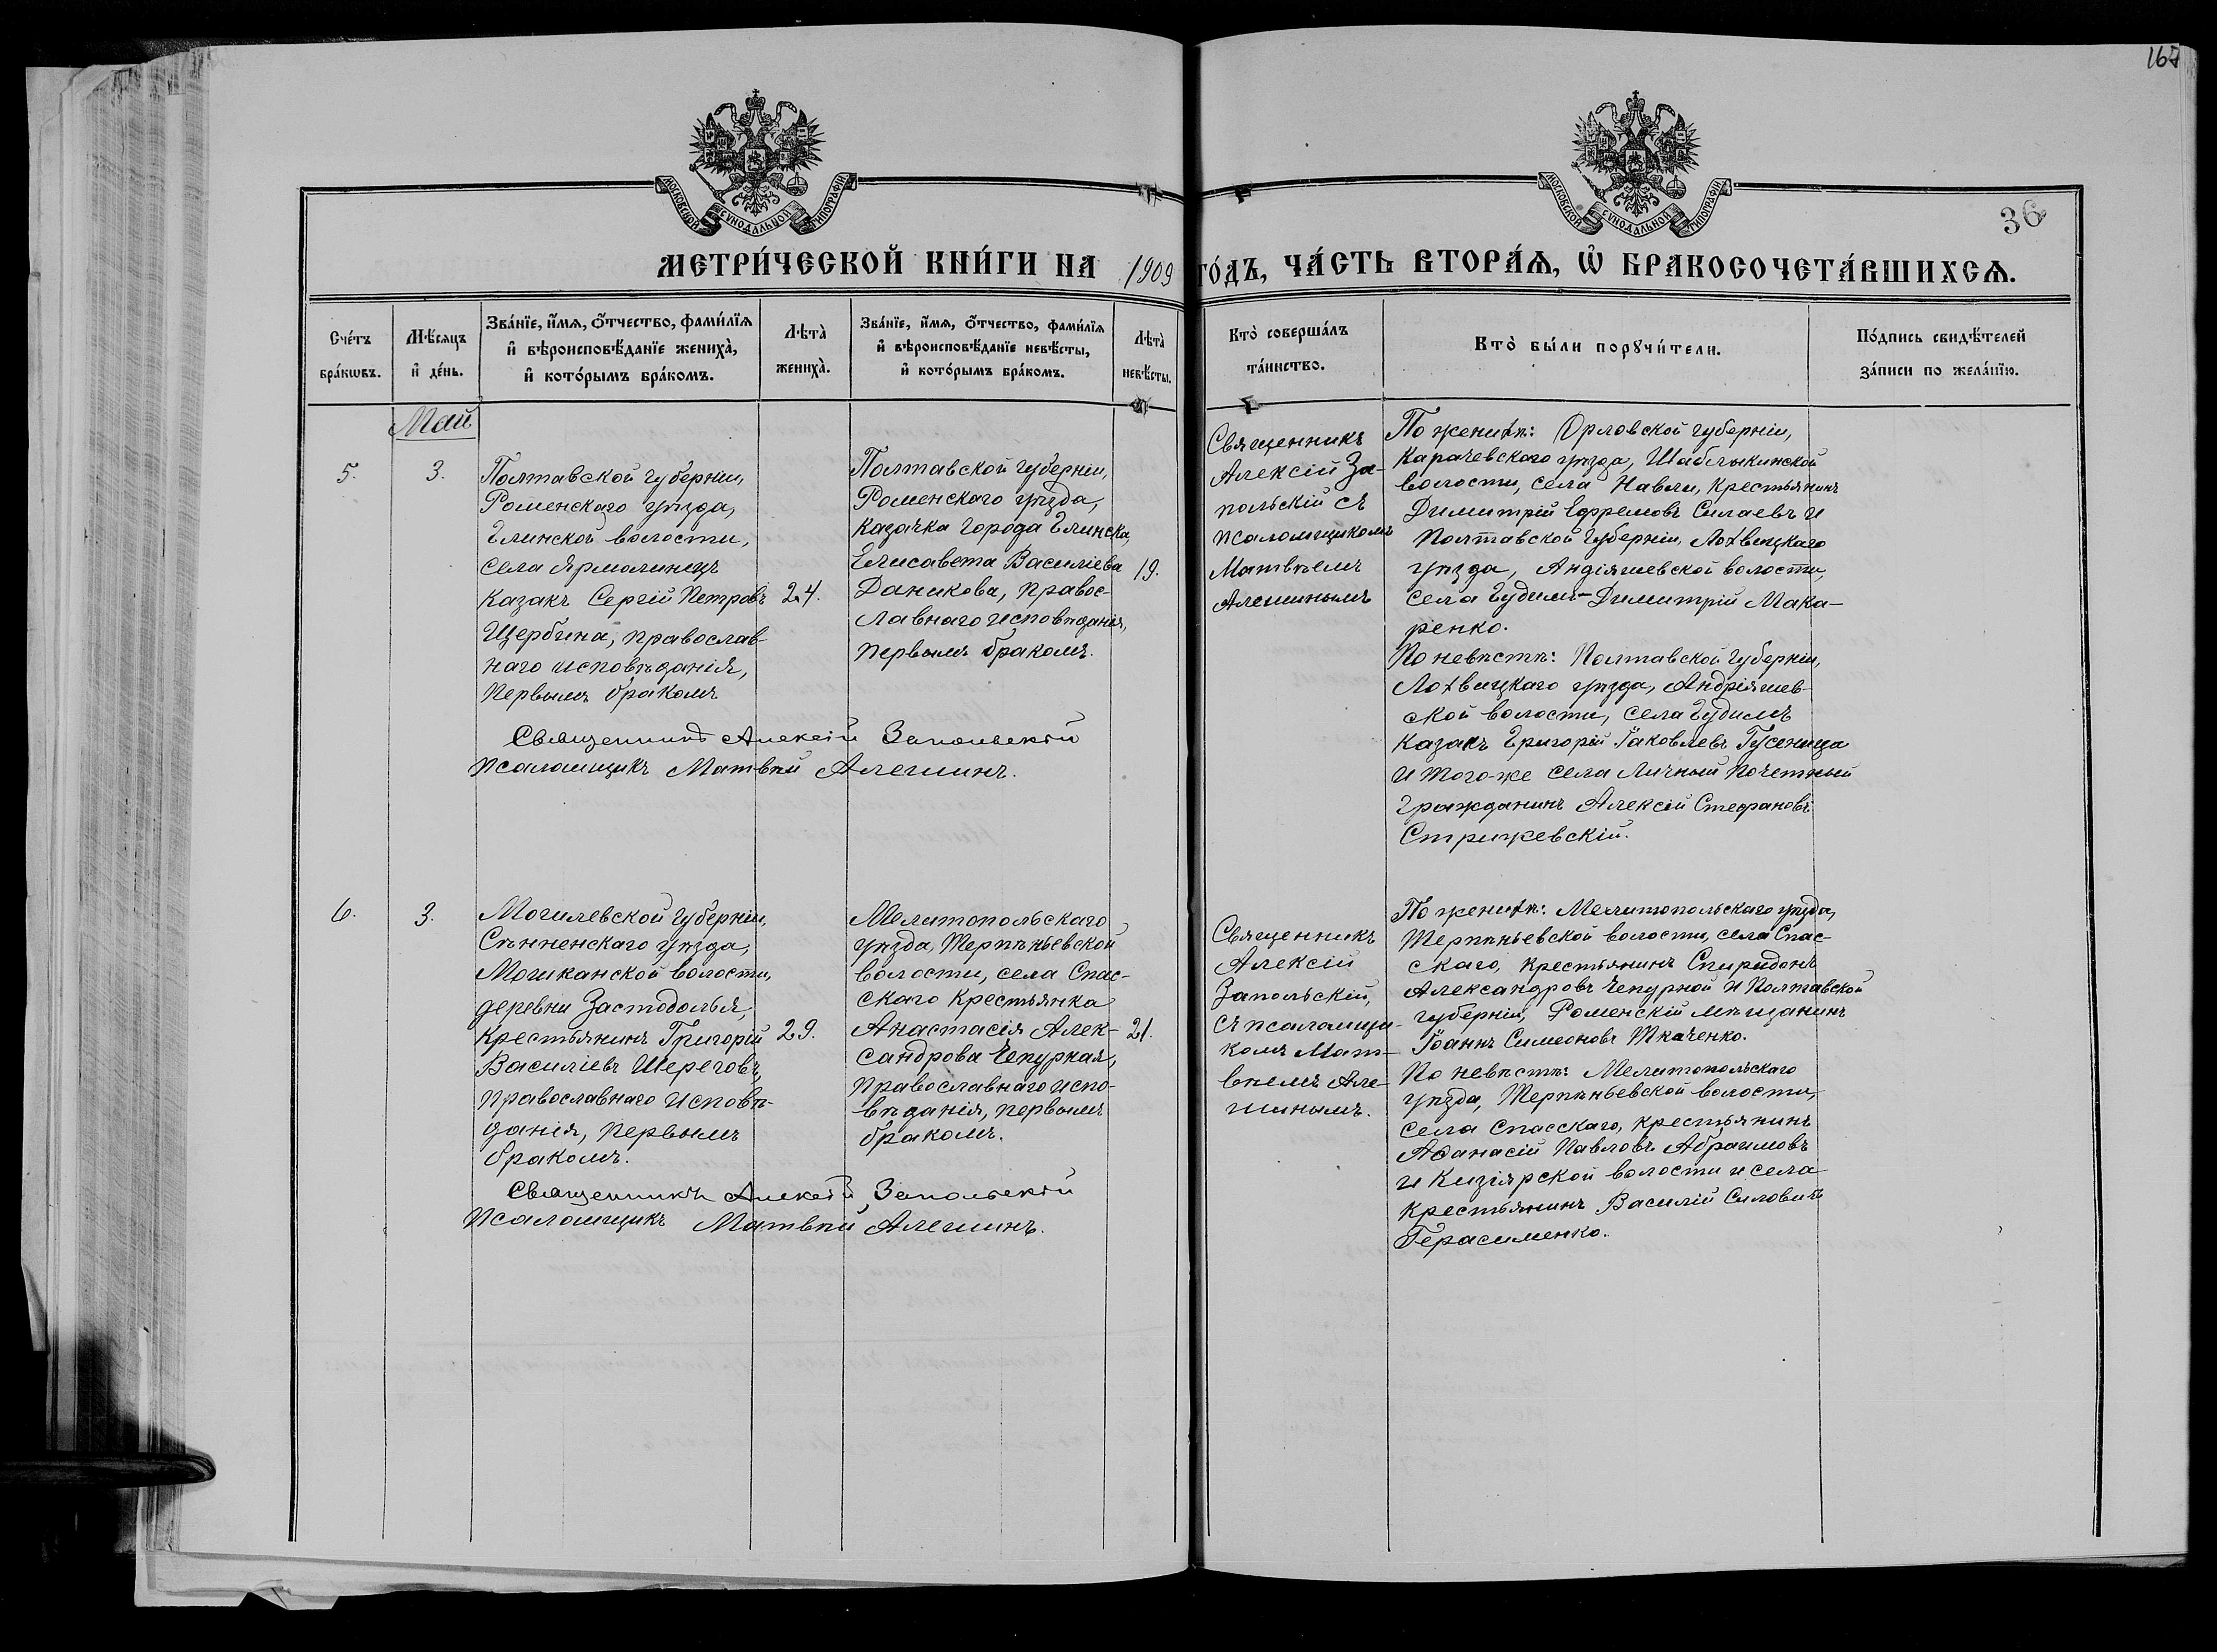 167
36
МОСКОВСКОЙ СѴНОДАЛЬНОЙ ТИПОГРАФІИ
МОСКОВСКОЙ СѴНОДАЛЬНОЙ ТИПОГРАФІИ
МЕТРИ́ЧЕСКОЙ КНИ́ГИ НА 1909 ГО́ДЪ, ЧА́СТЬ ВТОРА́Ѧ, Ѡ҆ БРАКОСОЧЕТА́ВШИХСѦ.
Сче́тъ
бра́кѡвъ.
Мѣ́сѧцъ
и҆ де́нь.
Зва́нїе, и҆́мѧ, ѻ҆́тчество, фами́лїѧ
и҆ вѣроисповѣ́данїе жениха̀,
и҆ кото́рымъ бра́комъ.
Лѣ́та̀
жениха̀.
Зва́нїе, и҆́мѧ, ѻ҆́тчество, фами́лїѧ
и҆ вѣроисповѣ́данїе невѣ́сты,
и҆ кото́рымъ бра́комъ.
Лѣ́та̀
невѣ́сты.
Кто̀ соверша́лъ
та́инство.
Кто̀ бы́ли порꙋчи́тели.
По́дпись свидѣ́телей
за́писи по жела́нїю.
Май
5.
3.
Полтавской губерніи,
Роменскаго уѣзда,
Глинской волости,
села Ярмолинецъ
казакъ Сергій Петровъ
Щербина, православ-
наго исповѣданія,
первымъ бракомъ
24.
Полтавской губерніи,
Роменскаго уѣзда,
казачка города Глинска,
Елисавета Василіева
Даникова, правос-
лавнаго исповѣданія,
первымъ бракомъ.
19.
Священникъ
Алексій За-
польскій съ
псаломщикомъ
Матвѣемъ
Алешинымъ
По женихѣ: Орловской губерніи,
Карачевскаго уѣзда, Шаблыкинской
волости, села Навли, крестьянинъ
Димитрій Ефремовъ Силаевъ и
Полтавской губерніи, Лохвицкаго
уѣзда, Андіяшевской волости,
села Гудимъ Димитрій Мака-
ренко.
По невѣстѣ: Полтавской губерніи,
Лохвицкаго уѣзда, Андріяшев-
ской волости, села Гудимъ
казакъ Григорій Іаковлевъ Гусеница
и того-же села личный почетный
гражданинъ Алексій Стефановъ
Стрижевскій.
Священникъ Алексій Запольскій
Псаломщикъ Матвѣй Алешинъ.
6.
3.
Могилевской губерніи,
Сѣнненскаго уѣзда,
Мошканской волости,
деревни Застодолья,
крестьянинъ Григорій
Василіевъ Шереговъ,
православнаго исповѣ-
данія, первымъ
бракомъ.
29.
Мелитопольскаго
уѣзда, Терпѣньевской
волости, села Спас-
скаго крестьянка
Анастасія Алек-
сандрова Чепурная,
православнаго испо-
вѣданія, первымъ
бракомъ.
21.
Священникъ
Алексій
Запольскій,
съ псаломщи-
комъ Мат-
вѣемъ Але-
шинымъ.
По женихѣ: Мелитопольскаго уѣзда,
Терпѣньевской волости, села Спас-
скаго, крестьянинъ Спиридонъ
Александровъ Чепурной и Полтавской
губерніи, Роменскій мѣщанинъ
Іоаннъ Симеоновъ Ткаченко.
По невѣстѣ: Мелитопольскаго
уѣзда, Терпѣньевской волости,
села Спасскаго, крестьянинъ
Аѳанасій Павловъ Абрагимовъ
и Кизіярской волости и села
крестьянинъ Василій Силовичъ
Герасименко.
Священникъ Алексій Запольскій
Псаломщикъ Матвѣй Алешинъ.